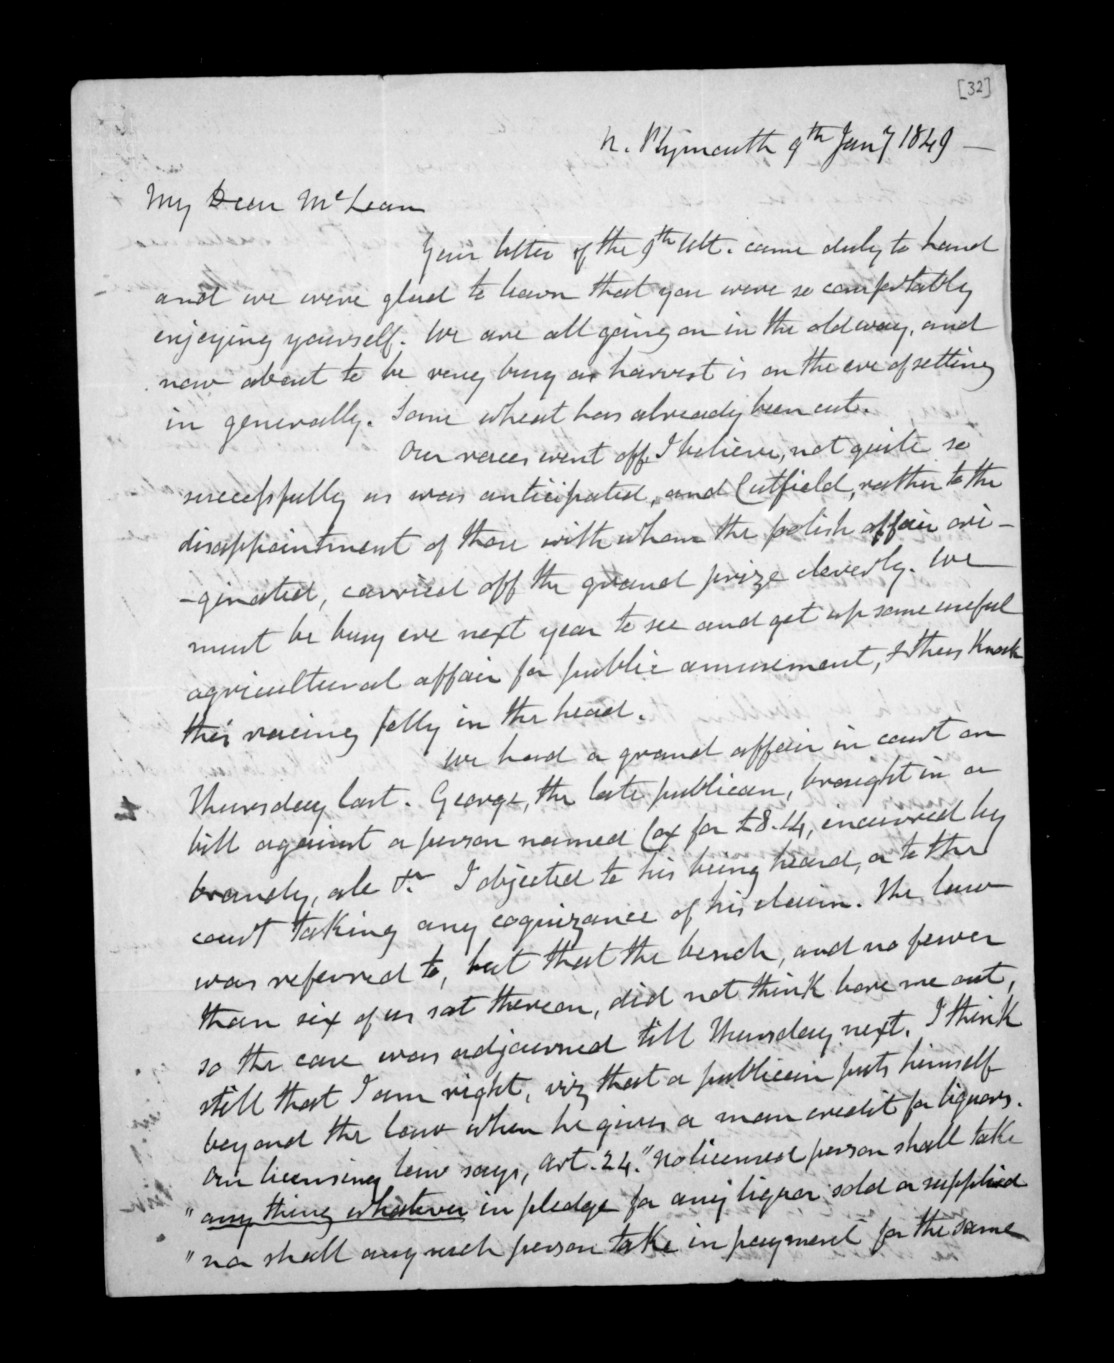 [32]
N. Plymouth 9th Jany 1849 —
My Dear McLean
Your letter of the 9th Ult. came duly to hand
and we were glad to learn that you were so comfortably
enjoying yourself. We are all going on in the old way, and
now about to be very busy as harvest is on the eve of setting
in generally. Some wheat has already been cut.
Our races went off, I believe, not quite so
successfully as was anticipated, and Cutfield, rather to the
disappointment of those with whom the polish affair ori-
-ginated, carried off the grand prize cleverly. We
must be busy ere next year to see and get up some useful
agricultural affair for public amusement, & thus Knock
this racing folly in the head.
We had a grand affair in court on
Thursday last. George, the late publican, brought in a
bill against a person named Cox for £8.14, incurred by
brandy, ale &c. I objected to his being heard, or to the
court taking any cognizance of his claim. The law
was referred to, but that the bench, and no fewer
than six of us sat thereon, did not think bore me out,
so the case was adjourned till Thursday next. I think
still that I am right, viz that a publican puts himself
beyond the law when he gives a man credit for liquors.
Our licensing law says, Art. 24. "No licensed person shall take
" any thing whatever in pledge for any liquor sold or supplied
" nor shall any such person take in payment for the same